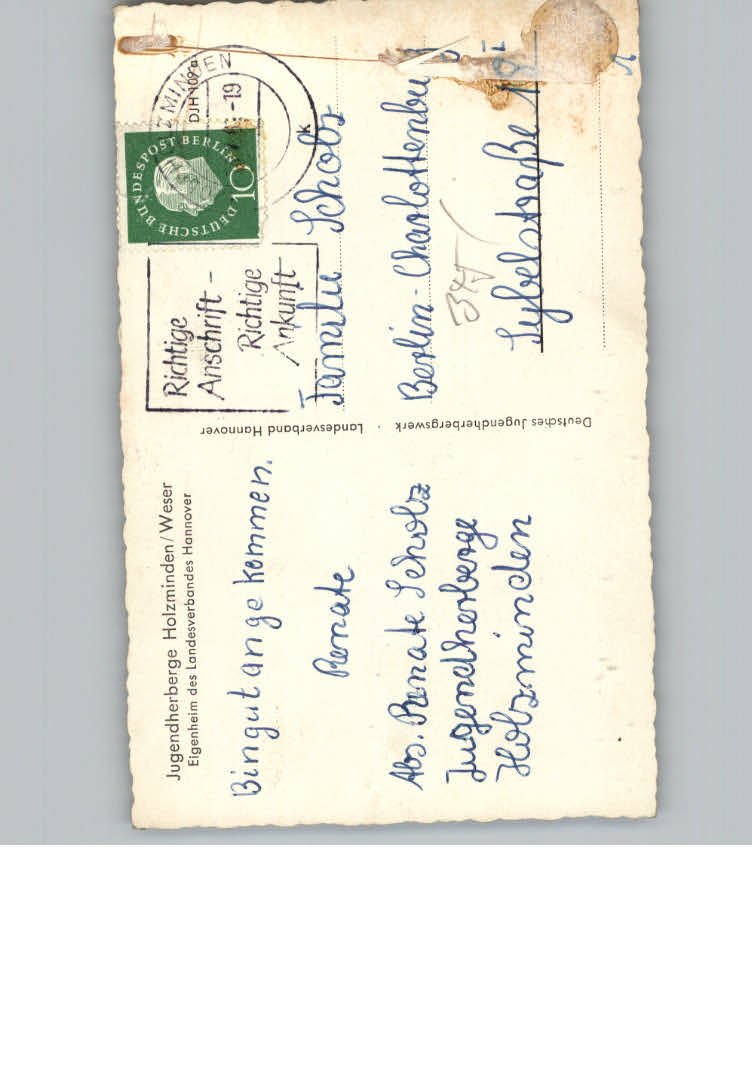 Jugendherberge Holzminden/Weser
Eigenheim des Landesverbandes Hannover
Bin gut angekommen.
Renate
Abs. Renate Scholz
Jugendherberge
Holzminden
Deutsches Jugendherbergswerk · Landesverband Hannover
DJH 109
ZMINDEN
-19
k
DEUTSCHE BUNDESPOST BERLIN
10
Richtige
Anschrift -
Richtige
Ankunft
Familie Scholz
Berlin-Charlottenbu
Sybelstraße